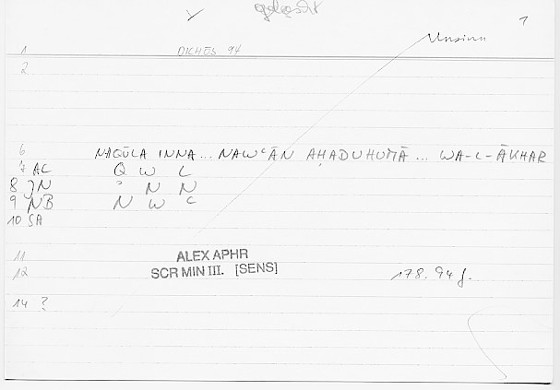 gelöscht
1
Unsinn
1 DICHES 94
2
6 NAQŪLA INNA... NAWʿĀN AḤADUHUMĀ... WA-L-ĀKHAR
7 AC Q W L
8 JN ʾ N N
9 NB N W ʿ
10 SA
11 ALEX APHR
12 SCR MIN III. [SENS] 178.94 f.
14 ?